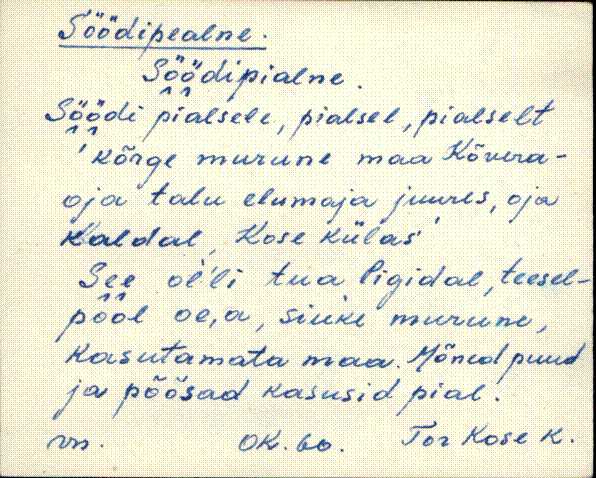 Söödipealne.
Söödipialne.
Söödi pialsele, pialsel, pialselt
'kõrge murune maa Kõvera-
oja talu elumaja juures, oja
kaldal, Kose külas'
See ol'li tua ligidal, teesel-
pôôl oea, siuke murune,
kasutamata maa. Mõned puud
ja põõsad kasusid pial.
vn. OK. 60. Tor Kose k.